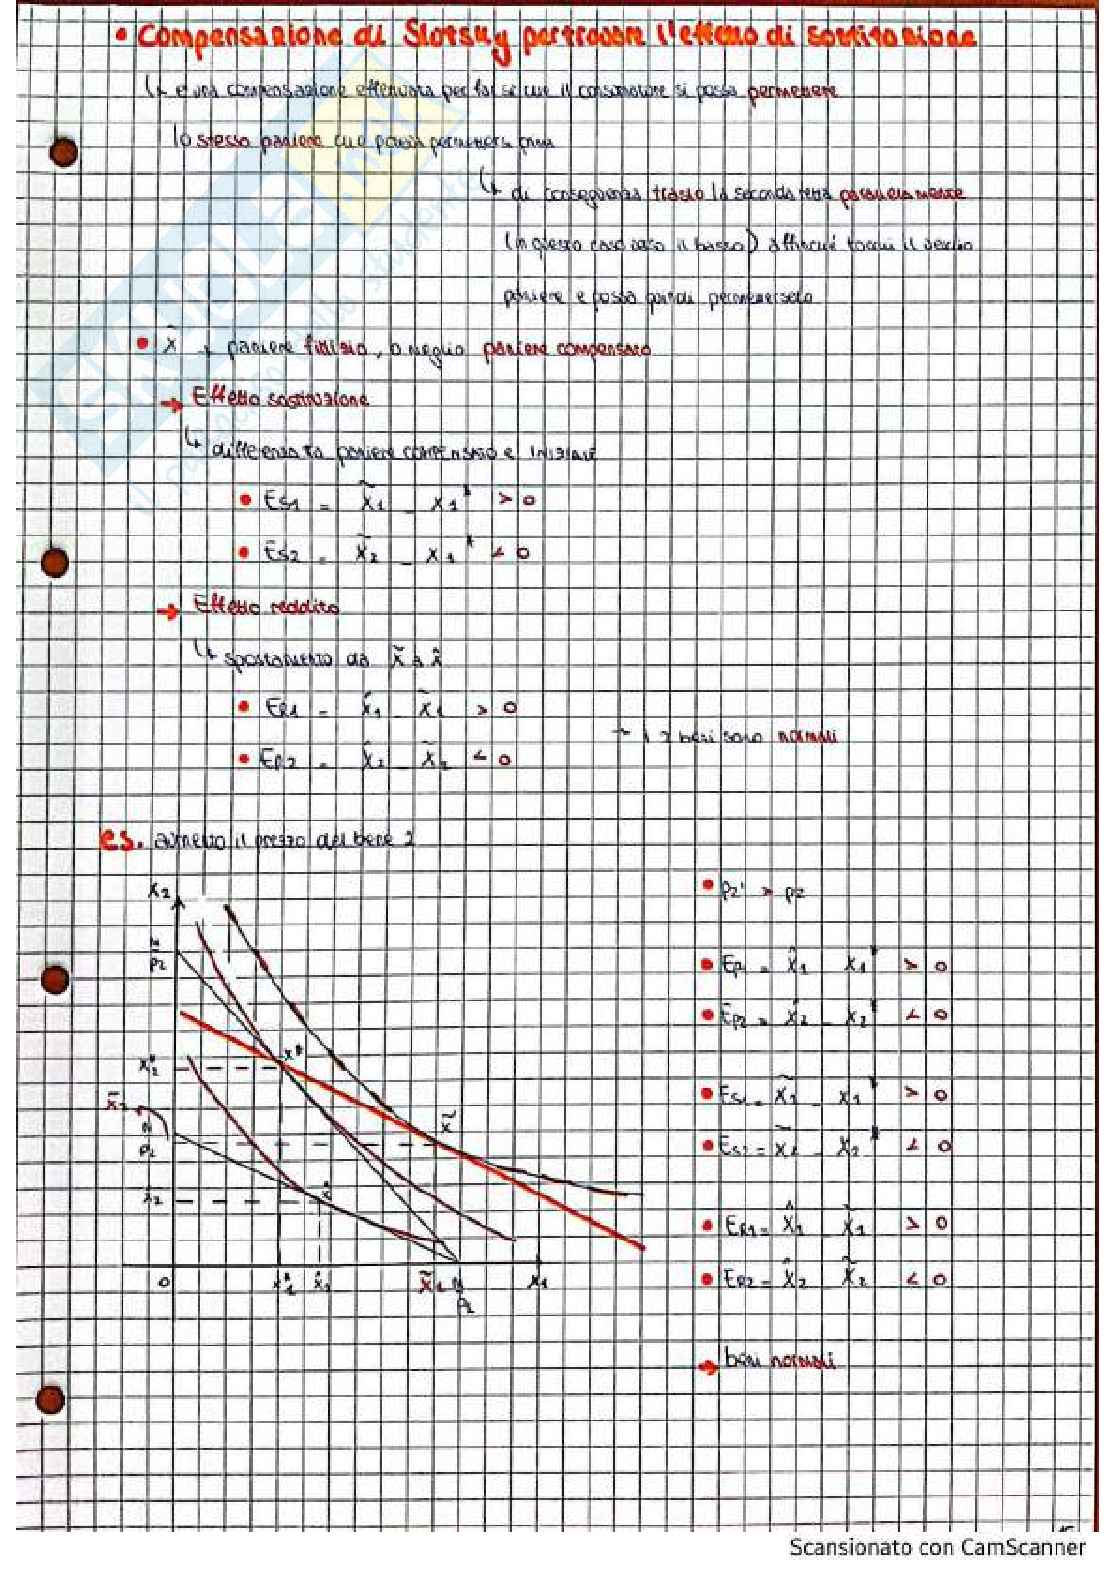 • Compensazione di Slotsky per trovare l'effetto di sostituzione
↳ è una compensazione effettuata per far sì che il consumatore si possa permettere
lo stesso paniere che poteva permettersi prima
↳ di conseguenza traslo la seconda retta parallelamente
(in questo caso verso il basso) affinché tocchi il vecchio
paniere e possa quindi permetterselo
• x̃ → paniere fittizio, o meglio paniere compensato
→ Effetto sostituzione
↳ differenza tra paniere COMPENSATO e INIZIALE
• ES1 = x̃1 - x1* > 0
• ES2 = x̃2 - x1* < 0
→ Effetto reddito
↳ spostamento da x̃ a x̂
• ER1 = x̂1 - x̃1 > 0
• ER2 = x̂2 - x̃2 < 0
→ i 2 beni sono normali
es. aumento il prezzo del bene 2
x2
p2
x*
x2*
x̃2
x̃
p2
x̂2
x̂
0
x1*
x̂1
x̃1
x1
• p2' > p2
• EP1 = x̂1 - x1* > 0
• EP2 = x̂2 - x2* < 0
• ES1 = x̃1 - x1* > 0
• ES2 = x̃2 - x2* < 0
• ER1 = x̂1 - x̃1 > 0
• ER2 = x̂2 - x̃2 < 0
→ beni normali
Scansionato con CamScanner